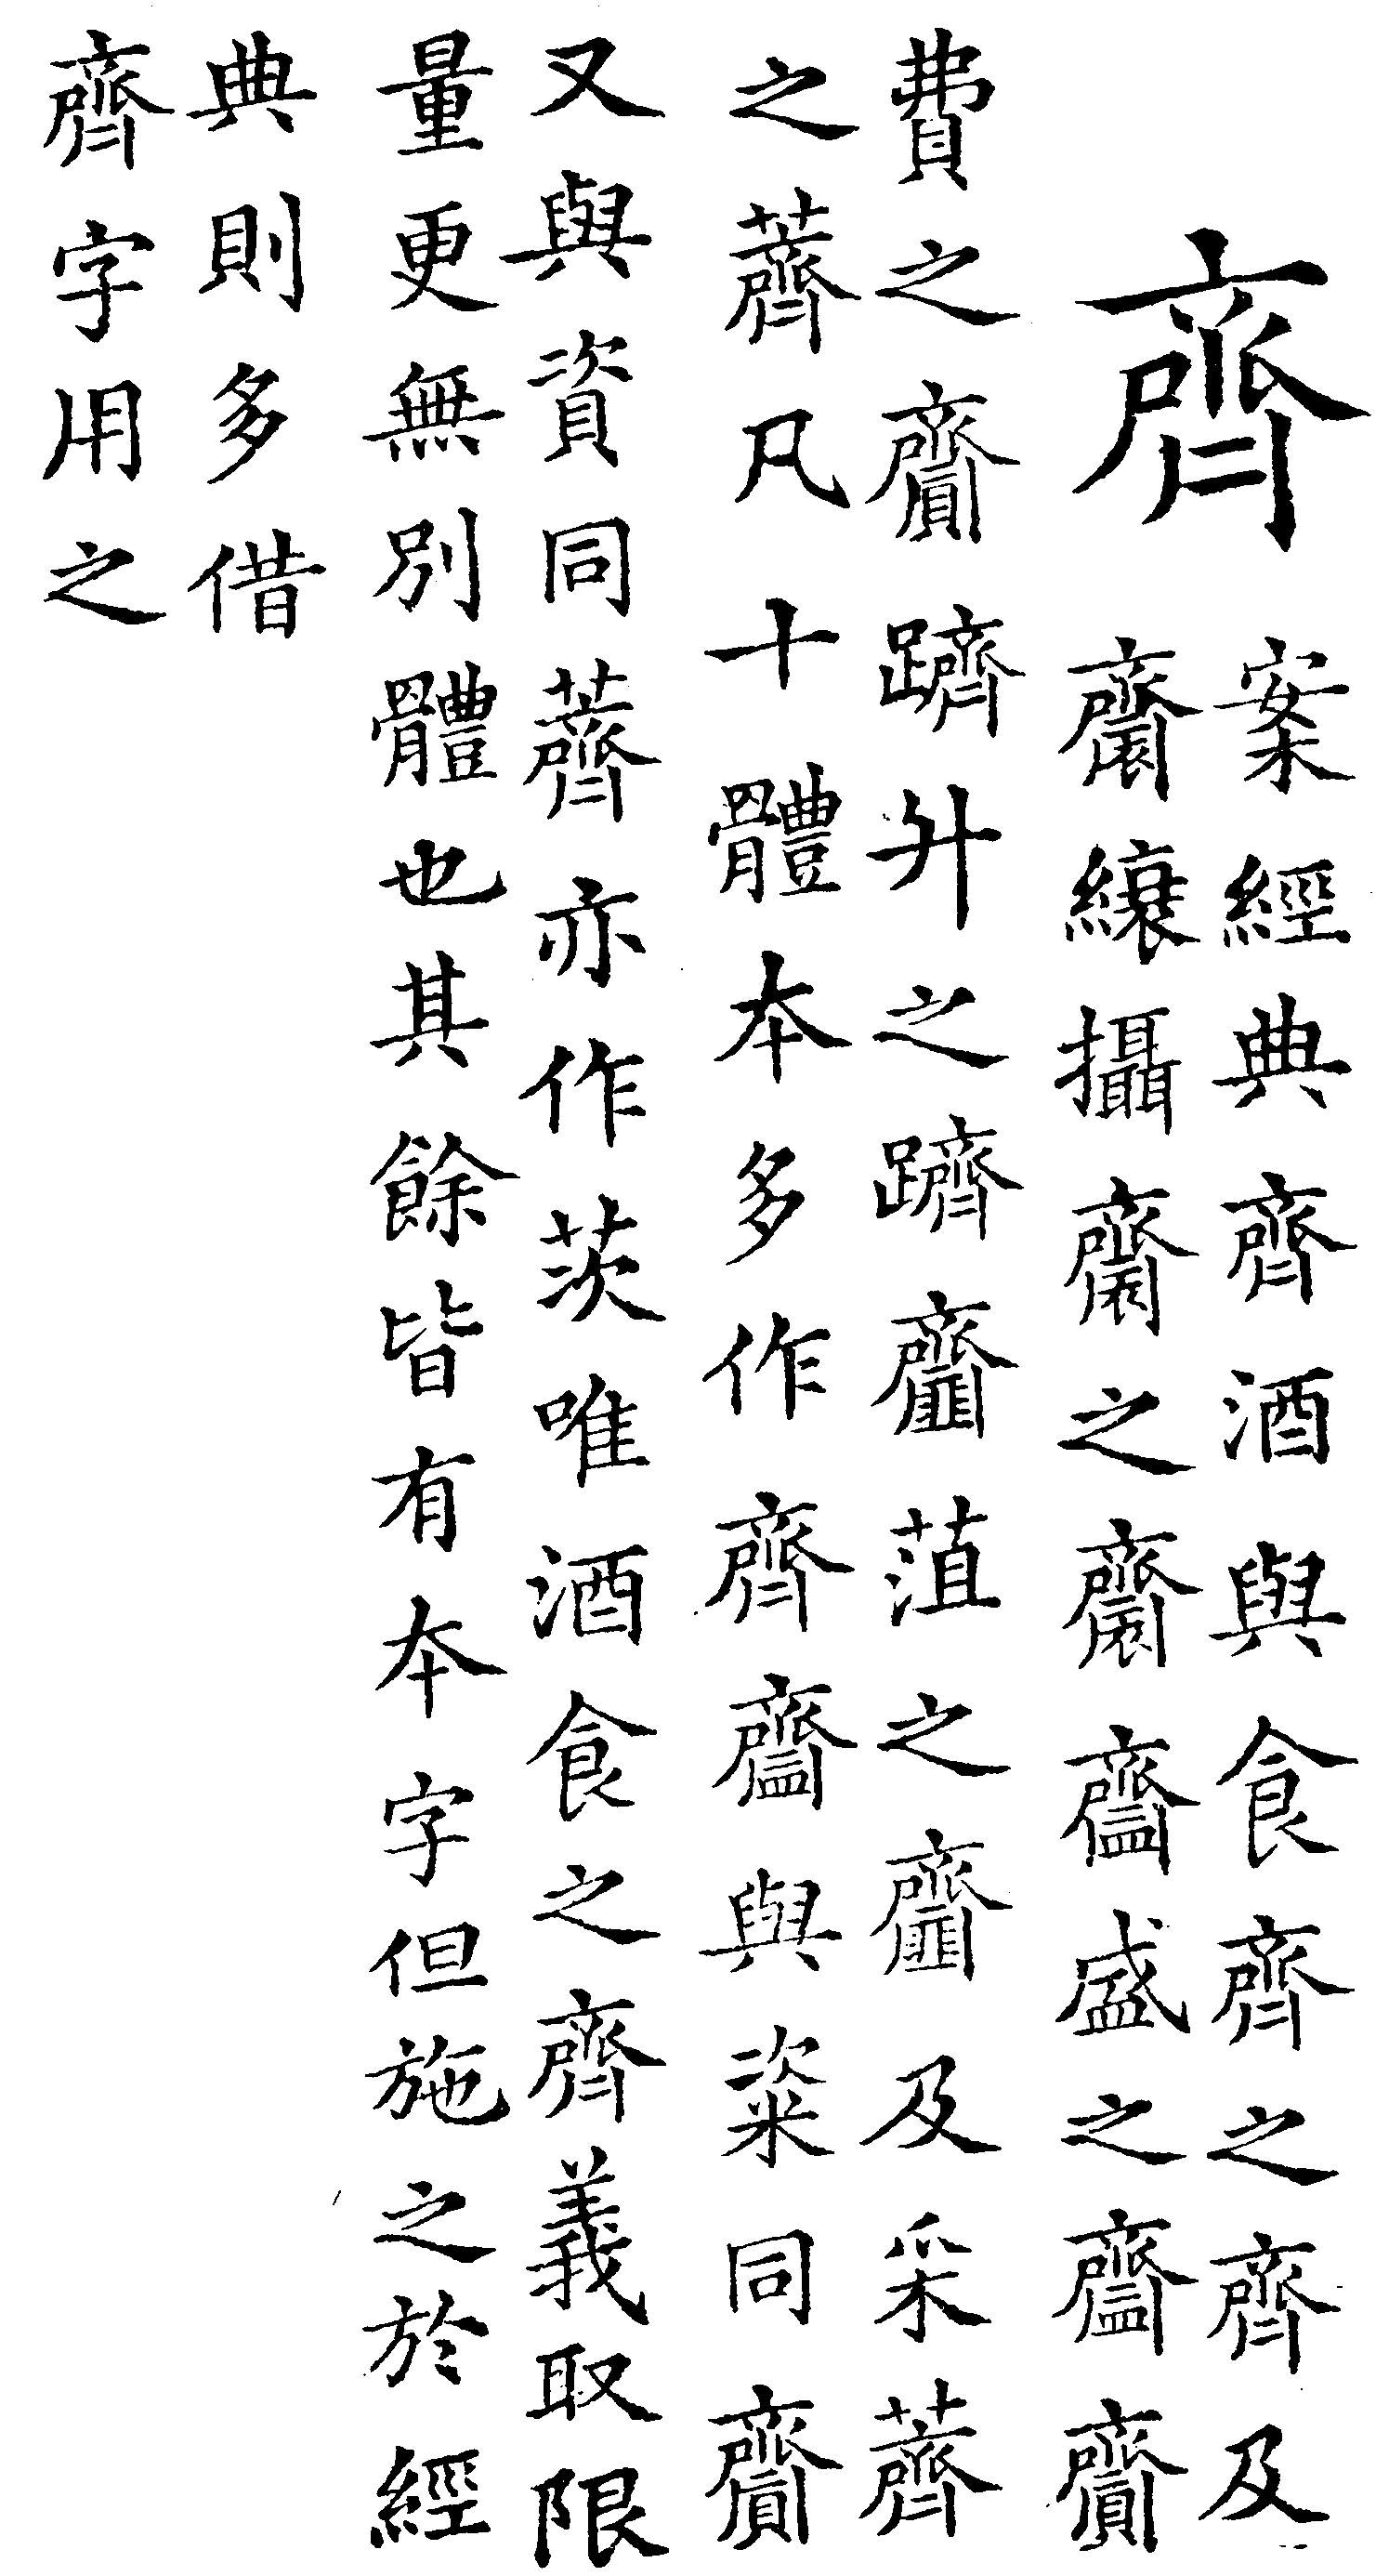 齊
案經典齊酒與食齊之齊及
𪗋縗攝𪗋之𪗋齍盛之齍齎
費之齎躋升之躋齏菹之齏及采薺
之薺凡十體本多作齊齍與粢同齎
又與資同薺亦作茨唯酒食之齊義取限
量更無別體也其餘皆有本字但施之於經
典則多借
齊字用之